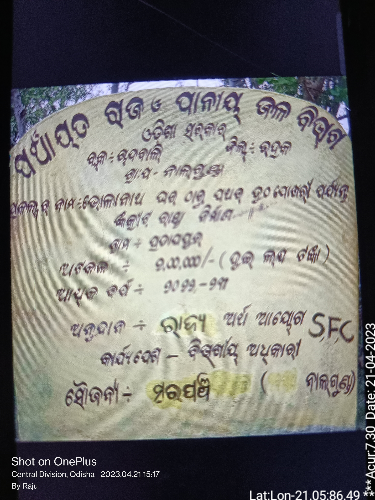 ପଞ୍ଚାୟତ ରାଜ ଓ ପାନୀୟ ଜଳ ବିଭାଗ
ଓଡ଼ିଶା ସରକାର
ବ୍ଲକ:- ଚାନ୍ଦବାଲି ଜିଲ୍ଲା:- ଭଦ୍ରକ
ଗ୍ରାମ - ନାଲଗୁଣ୍ଡା
ପ୍ରକଳ୍ପର ନାମ:- ଭୋଳାନାଥ ଘର ଠାରୁ ପଥର ହୁଡ଼ା ପୋଖରୀ ପର୍ଯ୍ୟନ୍ତ
କଂକ୍ରିଟ ରାସ୍ତା ନିର୍ମାଣ
ଗ୍ରାମ -
ଅଟକଳ ÷ ୨,୦୦,୦୦୦/- (ଦୁଇ ଲକ୍ଷ ଟଙ୍କା)
ଆର୍ଥିକ ବର୍ଷ ÷ ୨୦୨୨-୨୩
ଅନୁଦାନ ÷ ରାଜ୍ୟ ଅର୍ଥ ଆୟୋଗ SFC
କାର୍ଯ୍ୟଦେଶ - ବିଭାଗୀୟ ଅଧିକାରୀ
ସୌଜନ୍ୟ ÷ ସରପଞ୍ଚ ( ନାଲଗୁଣ୍ଡା)
Shot on OnePlus
Central Division, Odisha 2023.04.21 15:17
By Raju
Lat:Lon-21.05:86.49 ***Acur:7.30 Date: 21-04-2023